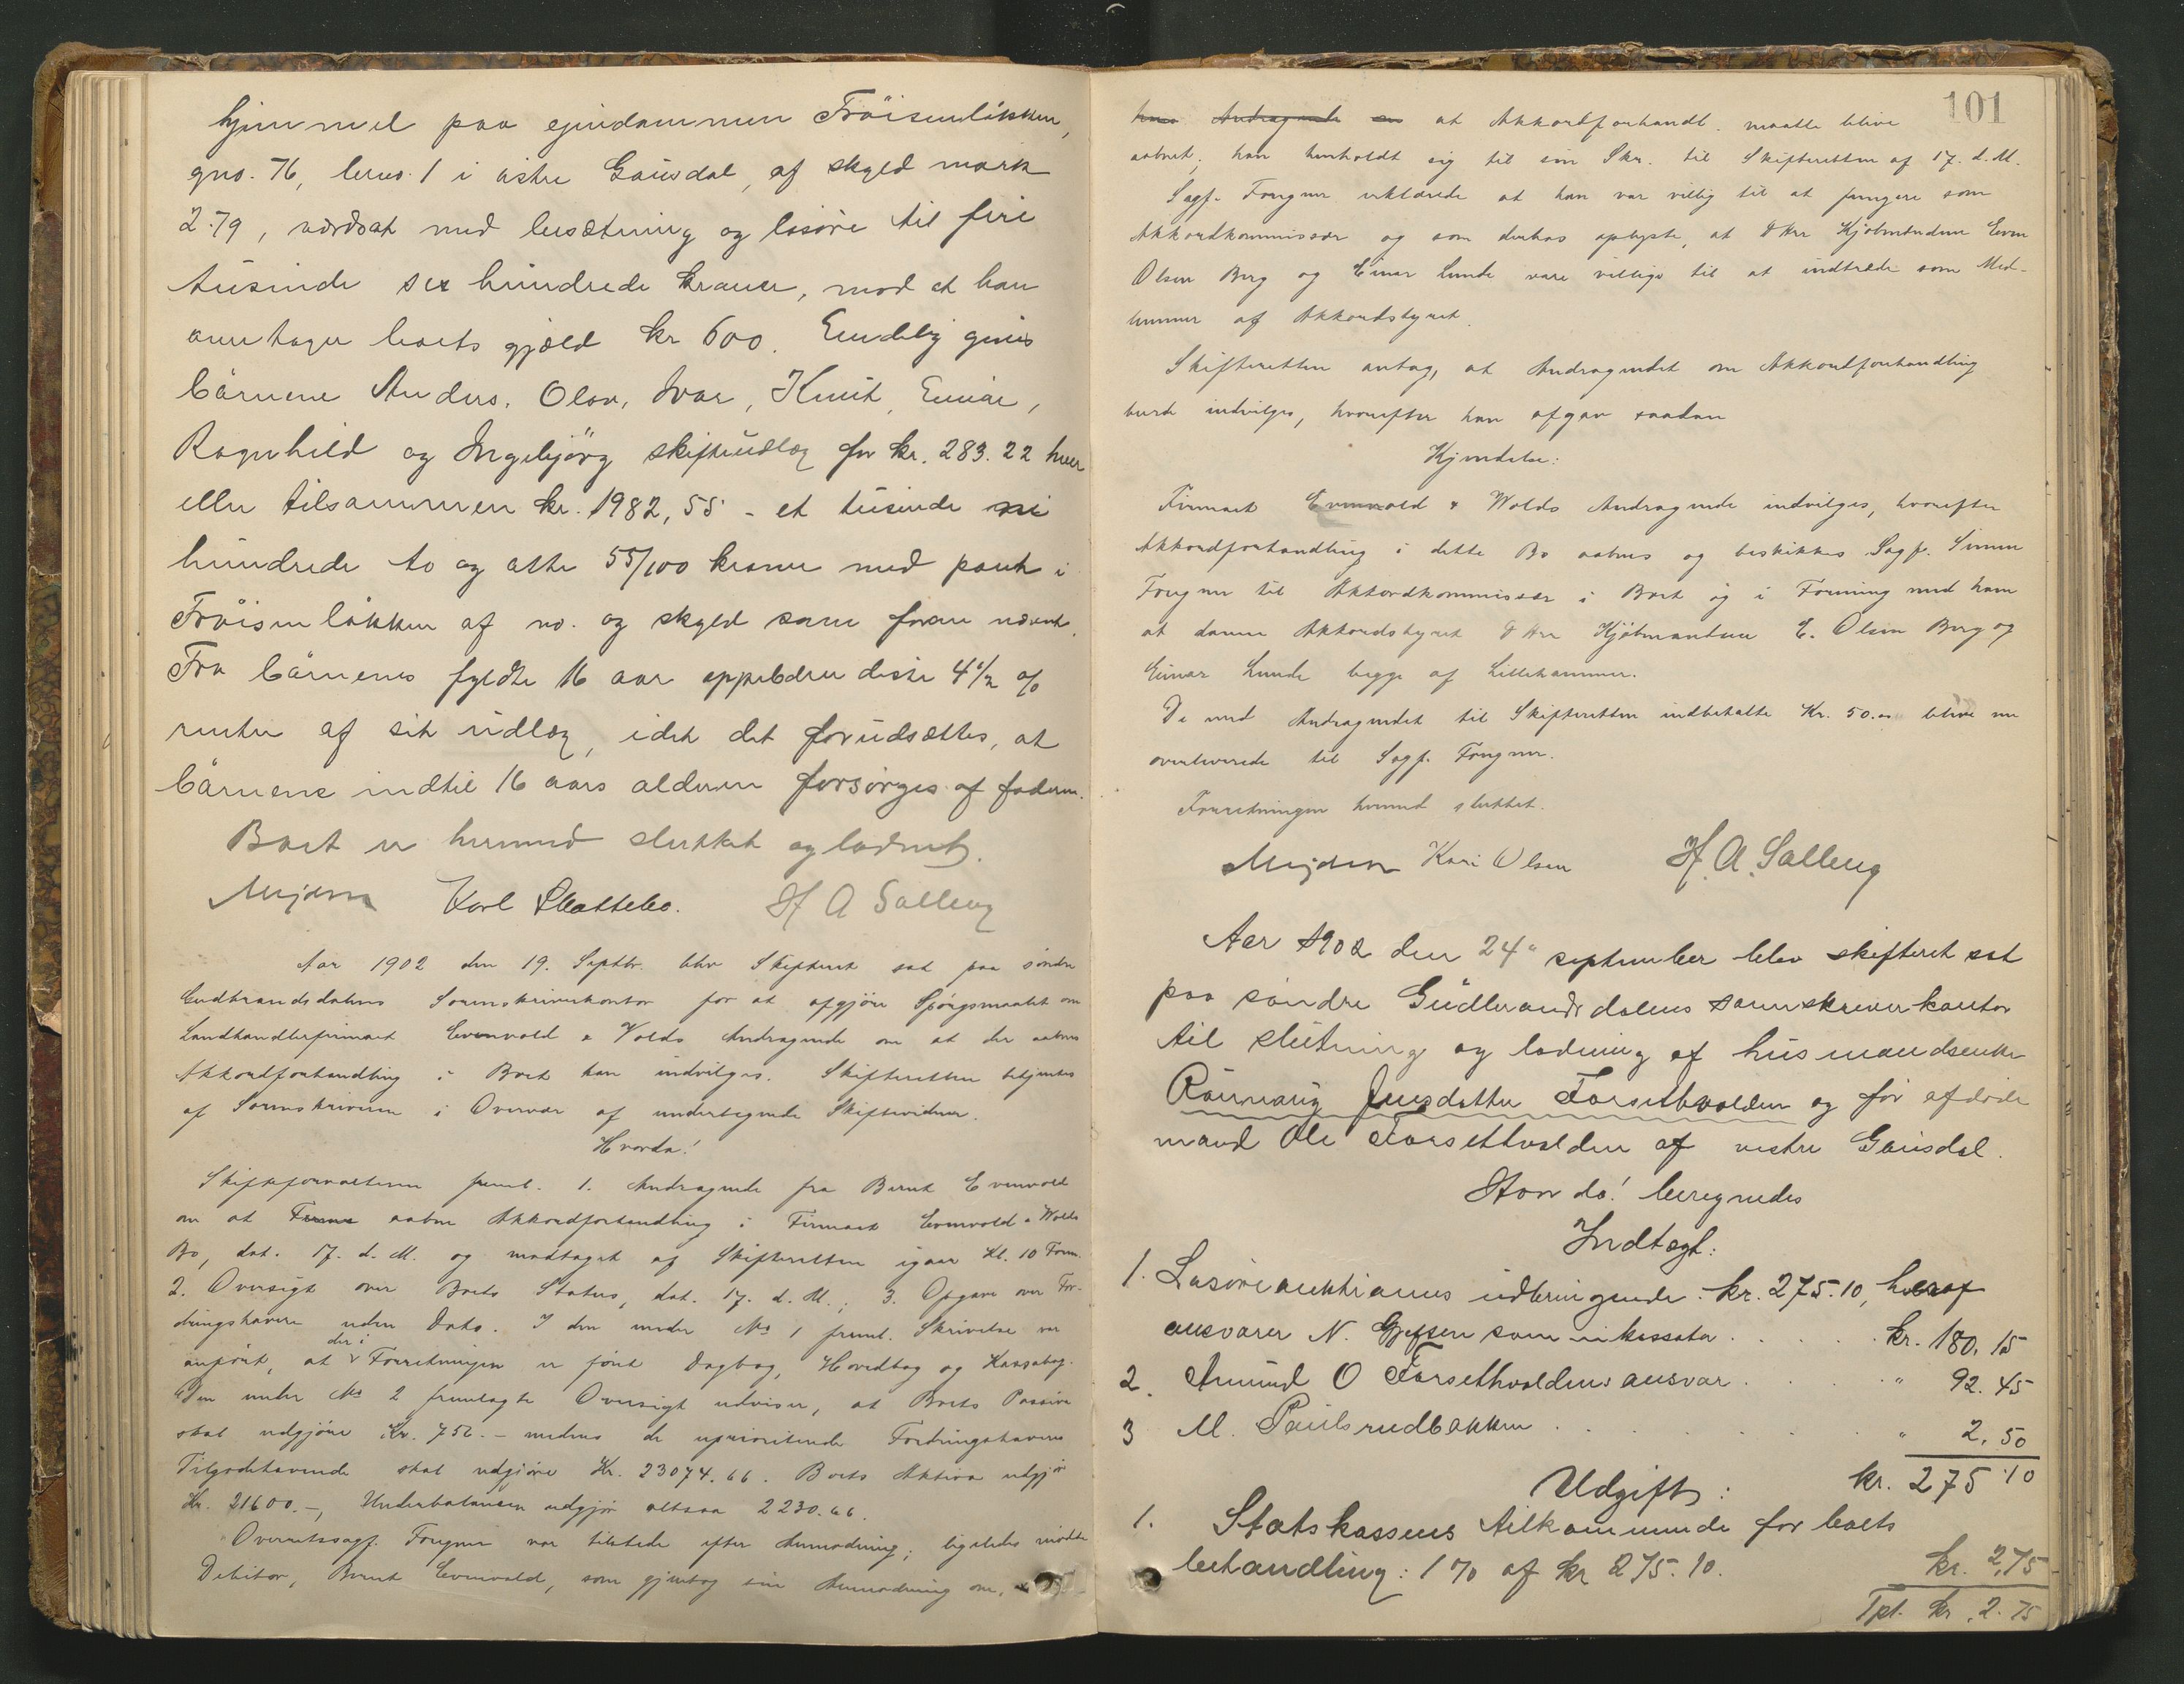 hjemmel paa eiendommen Fröisenløkken,
gno. 76, brno. 1 i østre Gausdal, af skyld mark
2.79, værdsat med besætning og løsøre til fire
tusinde sex hundrede kroner, mod at han
overtager boets gjæld kr 600. Endelig gives
börnene Anders, Olav, Ivar, Knut, Einar,
Ragnhild og Ingebjörg skifteudlæg for kr. 283.22 hver
eller tilsammen kr. 1982,55 - et tusinde ni
hundrede to og otti 55/100 kroner med pant i
Fröisenløkken af no. og skyld som foran nævnt.
Fra börnenes fyldte 16 aar oppebærer disse 4½ %
renter af sit udlæg, idet det forudsættes, at
börnene indtil 16 aars alderen forsørges af faderen.
Boet er hermed sluttet og lodnet.
Mejdem Karl Skattebo. H A Salling
Aar 1902 den 19. Septbr. blev Skifteret sat paa søndre
Gudbrandsdalens Sorenskriverkontor for at afgjöre Spörgsmaalet om
Landhandlerfirmaet Evenvold & Volds Andragende om at der aabnes
Akkordforhandling i Boet kan indvilges. Skifteretten betjentes
af Sorenskriveren i Overvær af undertegnede Skiftevidner.
Hvorda!
Skifteforvalteren freml. 1. Andragende fra Bernt Evenvold
om at Firma aabne Akkordforhandling i Firmaet Evenvold & Wolds
Bo, dat. 17. d. M. og modtaget af Skifteretten igaar Kl. 10 Form.
2. Oversigt over Boets Status, dat. 17. d. M.; 3. Opgave over For-
dringshavere uden Dato. I den under No 1 freml. Skrivelse var
der i
anført, at Forretningen er ført Dagbog, Hovedbog og Kassabog.
Den under No 2 fremlagte Oversigt udviser, at Boets Passiva
skal udgjöre Kr. 756.- medens de uprioriterede Fordringshaveres
Tilgodehavende skal udgjöre Kr. 23074.66. Boets Aktiva udgjör
Kr. 21600.-, Underbalancen udgjör altsaa 2230.66.
Overretssagf. Fougner var tilstede efter Anmodning; ligeledes mødte
Debitor, Bernt Evenvold, som gjentog sin Anmodning om,
101
hans Andragende om at Akkordforhandl. maatte blive
aabnet; han henholdt sig til sin Skr. til Skifteretten af 17. d. M.
Sagf. Fougner erklærede at han var villig til at fungere som
Akkordkommissær og som derhos oplyste, at DHrr Kjöbmændene Even
Olsen Berg og Einar Lunde vare villige til at indtræde som Med-
lemmer af Akkordstyret.
Skifteretten antog, at Andragendet om Akkordforhandling
burde indvilges, hvorefter han afgav saadan
Kjendelse:
Firmaet Evenvold & Wolds Andragende indvilges, hvorefter
Akkordforhandling i dette Bo aabnes og beskikkes Sagf. Simen
Fougner til Akkordkommissær i Boet og i Forening med ham
at danne Akkordstyret DHrr Kjöbmændene E. Olsen Berg og
Einar Lunde begge af Lillehammer.
De med Andragendet til Skifteretten indbetalte Kr. 50.00 blive nu
overleverede til Sagf. Fougner.
Forretningen hermed sluttet.
Mejdem Kari Olsen H. A. Salling
Aar 1902 den 24de september blev skifteret sat
paa søndre Gudbrandsdalens sorenskriverkontor
til slutning og lodning af husmandsenke
Rönnaug Jensdatter Forsethvolden og før afdöde
mand Ole Forsethvolden af vestre Gausdal.
Hvorda! beregnedes
Indtægt:
1. Løsøreauktionens udbringende. kr. 275.10, heraf
ansvarer N. Gjefsen som inkassator . . . . . kr. 180.15
2. Amund O Forsethvoldens ansvar . . . . " 92.45
3 M. Paulsrudbakken . . . . . . " 2.50
kr. 275.10
Udgift:
1. Statskassens tilkommende for boets
behandling: 1 % af kr 275.10. kr. 2,75
Tpt. kr. 2.75